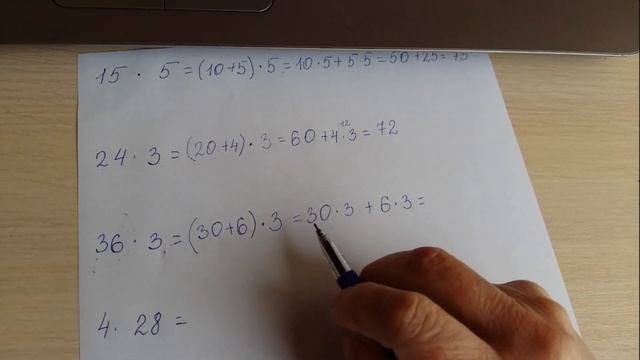 15 · 5 = (10+5) · 5 = 10 · 5 + 5 · 5 = 50 + 25 = 75
24 · 3 = (20+4) · 3 = 60 + 4 · 3 = 72
12
36 · 3 = (30+6) · 3 = 30 · 3 + 6 · 3 =
4 · 28 =